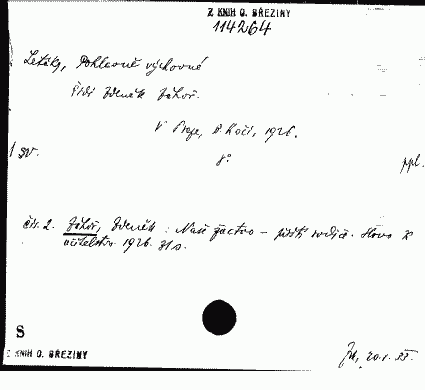 Z KNIH O. BŘEZINY
114264
Letáky, Pohlavně výchovné
Řídí Zdeněk Záhoř.
V Praze, B. Kočí, 1926.
1 sv. 8° ppl.
čís. 2. Záhoř, Zdeněk: Naše žactvo - příští rodiče. Slovo k
učitelstvu. 1926. 31 s.
S
Z KNIH O. BŘEZINY
20.1.55.